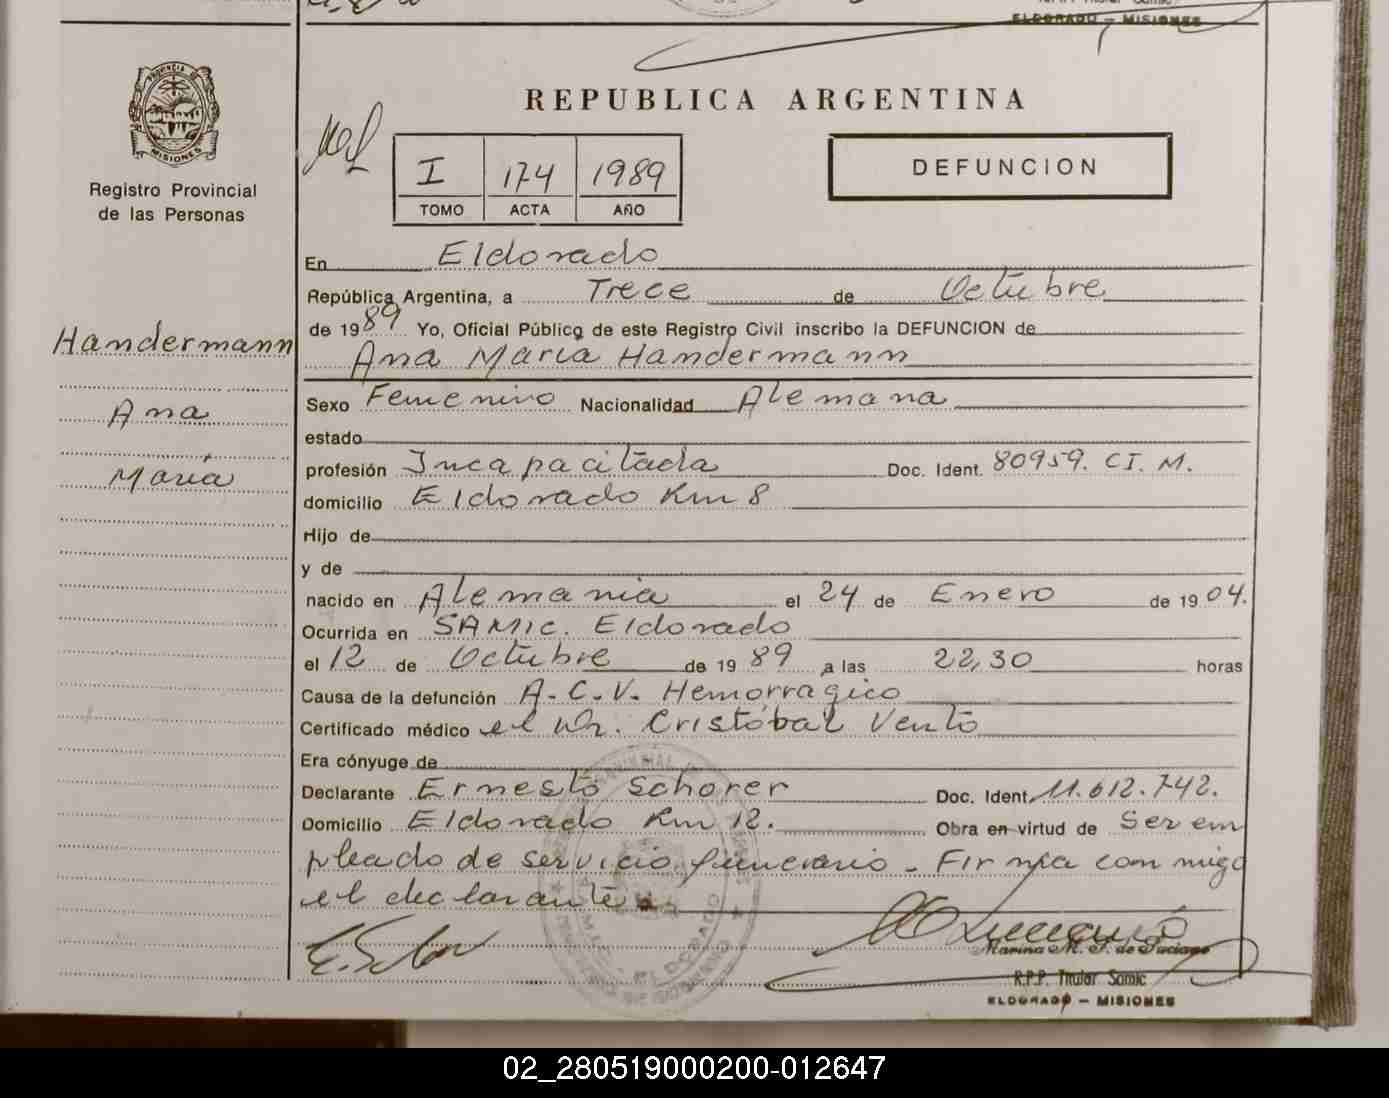 ELDORADO — MISIONES
PROVINCIA DE
MISIONES
Registro Provincial
de las Personas
REPUBLICA ARGENTINA
DEFUNCION
I 174 1989
TOMO ACTA AÑO
En Eldorado
República Argentina, a Trece de Octubre
de 1989 Yo, Oficial Público de este Registro Civil inscribo la DEFUNCION de
Ana María Handermann
Handermann
Ana
María
Sexo Femenino Nacionalidad Alemana
estado
profesión Incapacitada Doc. Ident. 80959. CI. M.
domicilio Eldorado Km 8
Hijo de
y de
nacido en Alemania el 24 de Enero de 1904.
Ocurrida en SAMIC. Eldorado
el 12 de Octubre de 1989 a las 22,30 horas
Causa de la defunción A.C.V. Hemorragico
Certificado médico el Dr. Cristóbal Vento
Era cónyuge de
Declarante Ernesto Schorer Doc. Ident. 11.612.742.
Domicilio Eldorado Km 12. Obra en virtud de Ser em
pleado de servicio funerario. Firma conmigo
el declarante.
E. Scho
Marina M. F. de Luciano
R.P.P. Titular Samic
ELDORADO — MISIONES
02_280519000200-012647